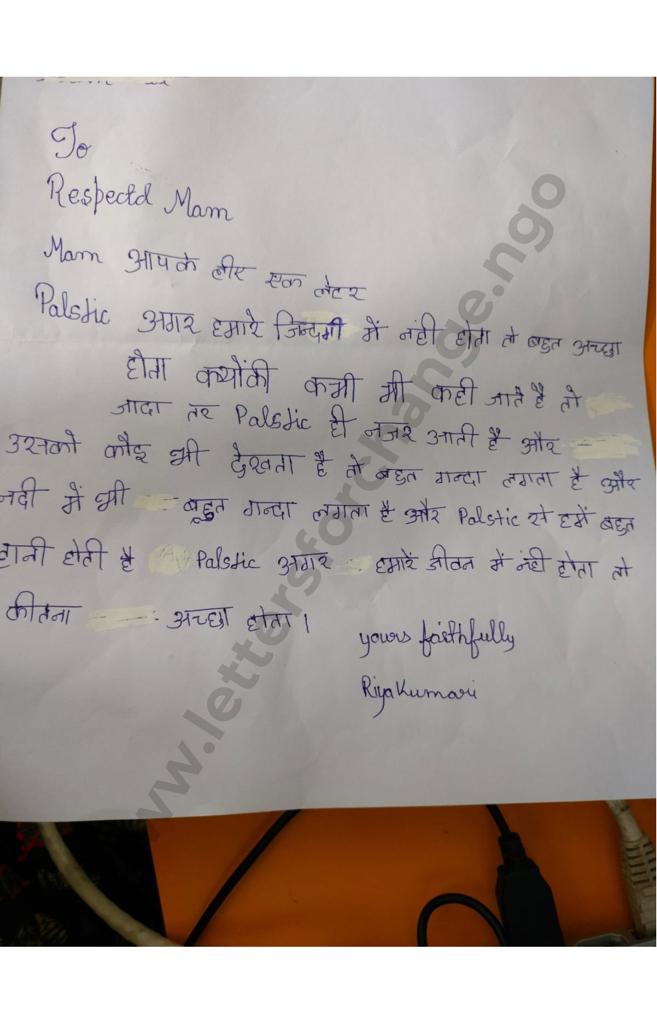 To
Respectd Mam
Mam आपके लीए एक लेटर
Palstic अगर हमारे जिन्दगी में नंही होता तो बहुत अच्छा
होता क्योंकी कभी भी कही जाते है तो
जादा तर Palstic ही नजर आती है और
उसको कोइ भी देखता है तो बहुत गन्दा लगता है और
नदी में भी बहुत गन्दा लगता है और Palstic से हमें बहुत
हानी होती है Palstic अगर हमारें जीवन में नंही होता तो
कीतना अच्छा होता।
yours faithfully
Riya Kumari
www.lettersforchange.ngo